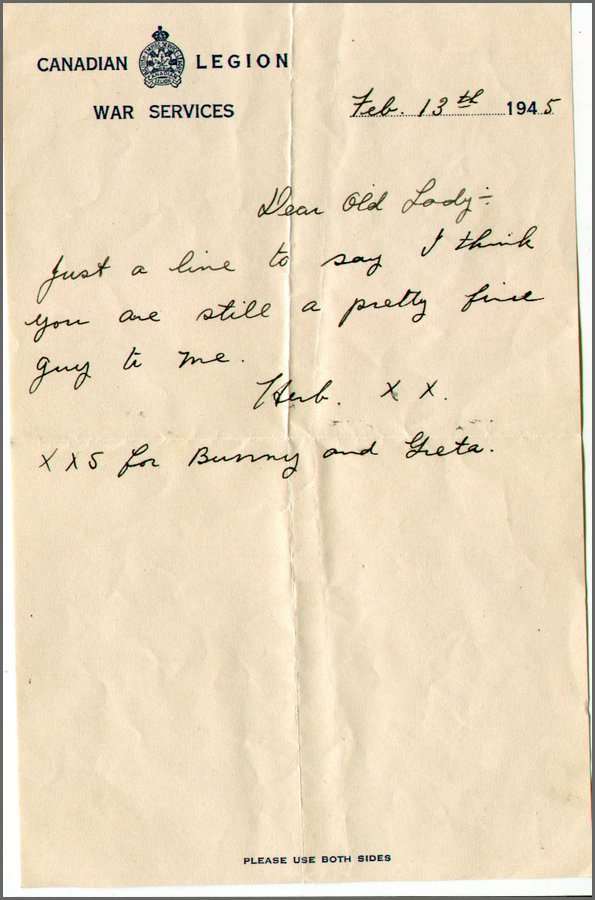 CANADIAN LEGION
WAR SERVICES
Feb. 13th 1945
Dear Old Lady:-
Just a line to say I think
you are still a pretty fine
guy to me.
Herb. X X.
X X S for Bunny and Greta.
PLEASE USE BOTH SIDES